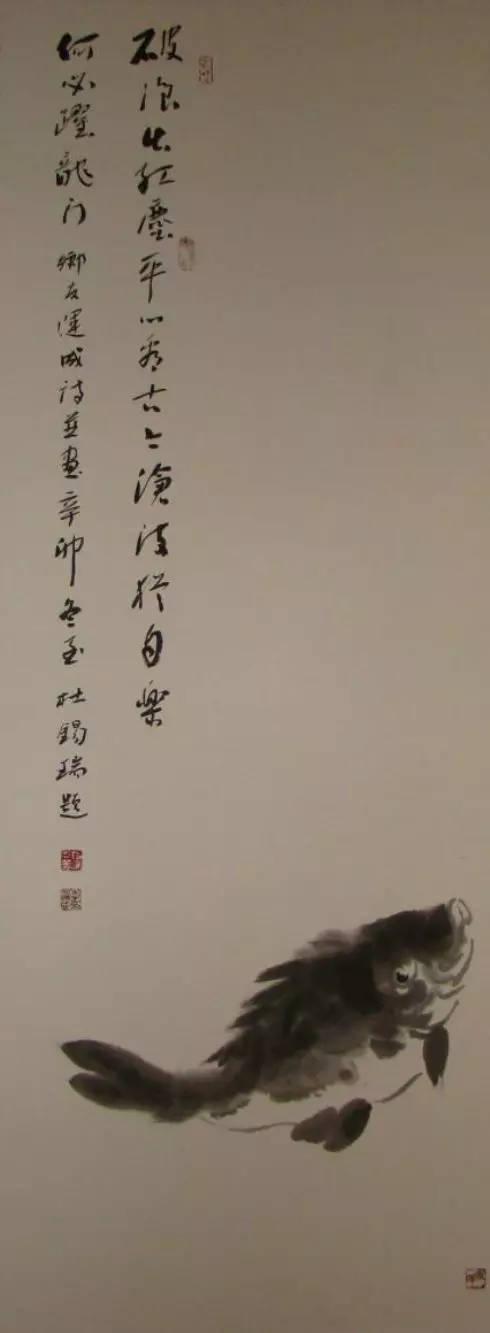 破浪出红塵平心看古今滄波犹自樂
何必躍龍门 鄉友運成诗並畫辛卯冬至 杜錫瑞題